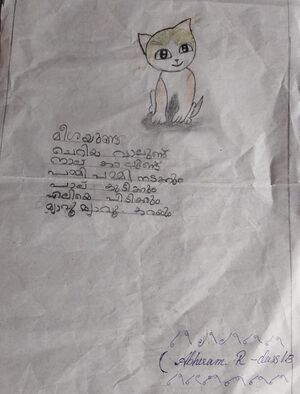 മീശയുണ്ട്
ചെറിയ വാലുണ്ട്
നാല് കാലുണ്ട്
പമ്മി പമ്മി നടക്കും
പാല് കുടിക്കും
എലിയെ പിടിക്കും
മ്യാവൂ മ്യാവൂ കരയും
(Abhiram. R -class